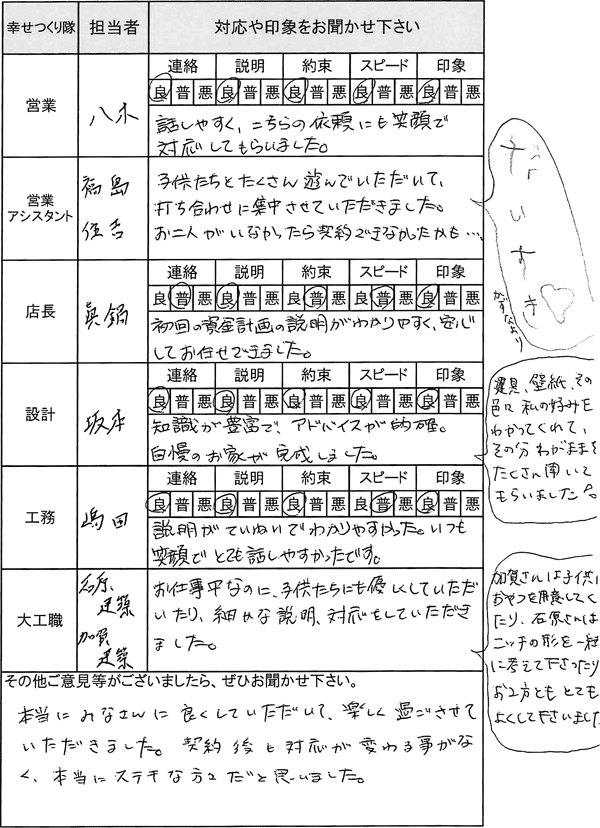 幸せつくり隊 担当者 対応や印象をお聞かせ下さい
営業 八木
連絡 説明 約束 スピード 印象
良 普 悪 良 普 悪 良 普 悪 良 普 悪 良 普 悪
話しやすく、こちらの依頼にも笑顔で
対応してもらいました。
営業
アシスタント
福島
住吉
子供たちとたくさん遊んでいただいて、
打ち合わせに集中させていただきました。
お二人がいなかったら契約できなかったかも…
だいすき♡
かずなより
店長 眞鍋
連絡 説明 約束 スピード 印象
良 普 悪 良 普 悪 良 普 悪 良 普 悪 良 普 悪
初回の資金計画の説明がわかりやすく、安心
してお任せできました。
設計 坂本
連絡 説明 約束 スピード 印象
良 普 悪 良 普 悪 良 普 悪 良 普 悪 良 普 悪
知識が豊富で、アドバイスが的確。
自慢のお家が完成しました。
建具、壁紙、その
色々私の好みを
わかってくれて、
その分わがままを
たくさん聞いて
もらいました
工務 嶋田
連絡 説明 約束 スピード 印象
良 普 悪 良 普 悪 良 普 悪 良 普 悪 良 普 悪
説明がていねいでわかりやすかった。いつも
笑顔でとても話しやすかったです。
大工職
石原
建築
加賀
建築
お仕事中なのに、子供たちにも優しくしていただ
いたり、細やかな説明、対応をしていただき
ました。
加賀さんは子供に
おやつを用意してく
たり、石原さんは
ニッチの形を一緒
に考えて下さったり
お2方ともとても
よくして下さいました
その他ご意見等がございましたら、ぜひお聞かせ下さい。
本当にみなさんに良くしていただいて、楽しく過ごさせて
いただきました。契約後も対応が変わる事がな
く、本当にステキな方々だと思いました。